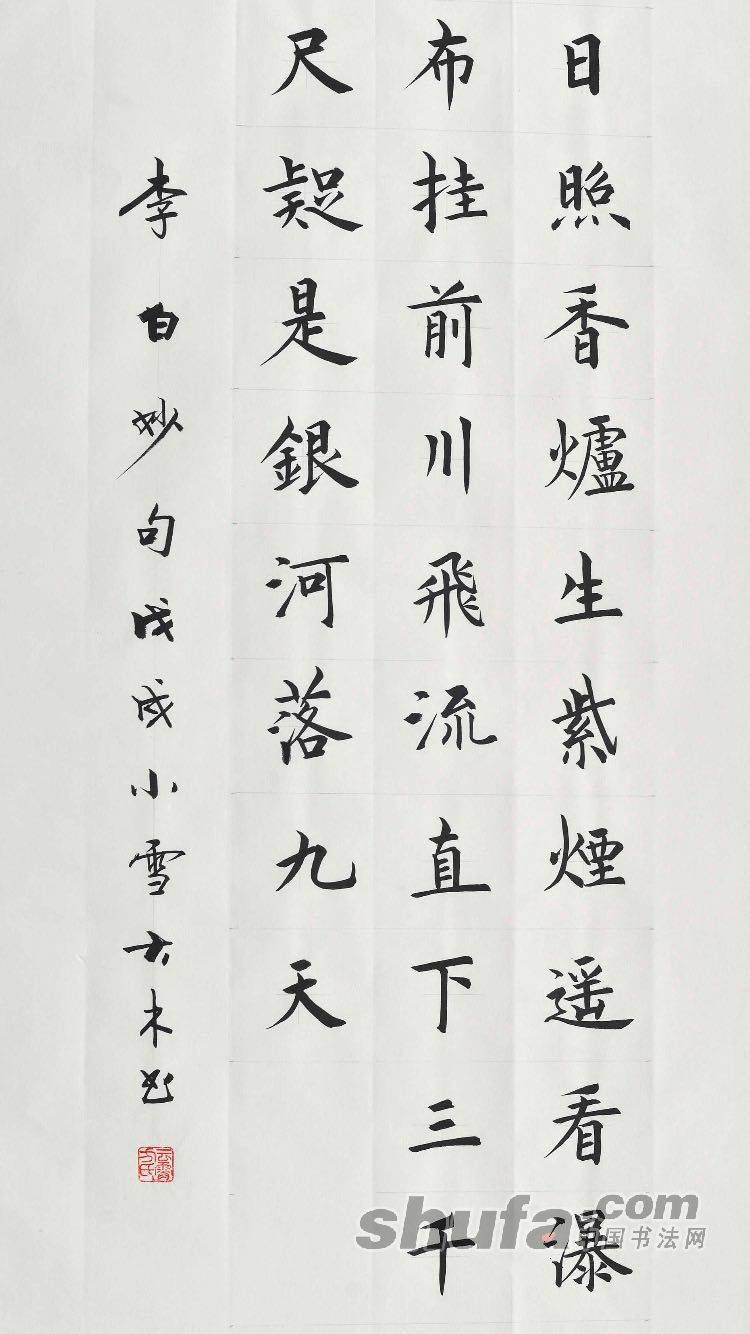 日照香爐生紫煙遥看瀑
布挂前川飛流直下三千
尺疑是銀河落九天
李白妙句戊戌小雪木书
shufa.com
中国书法网